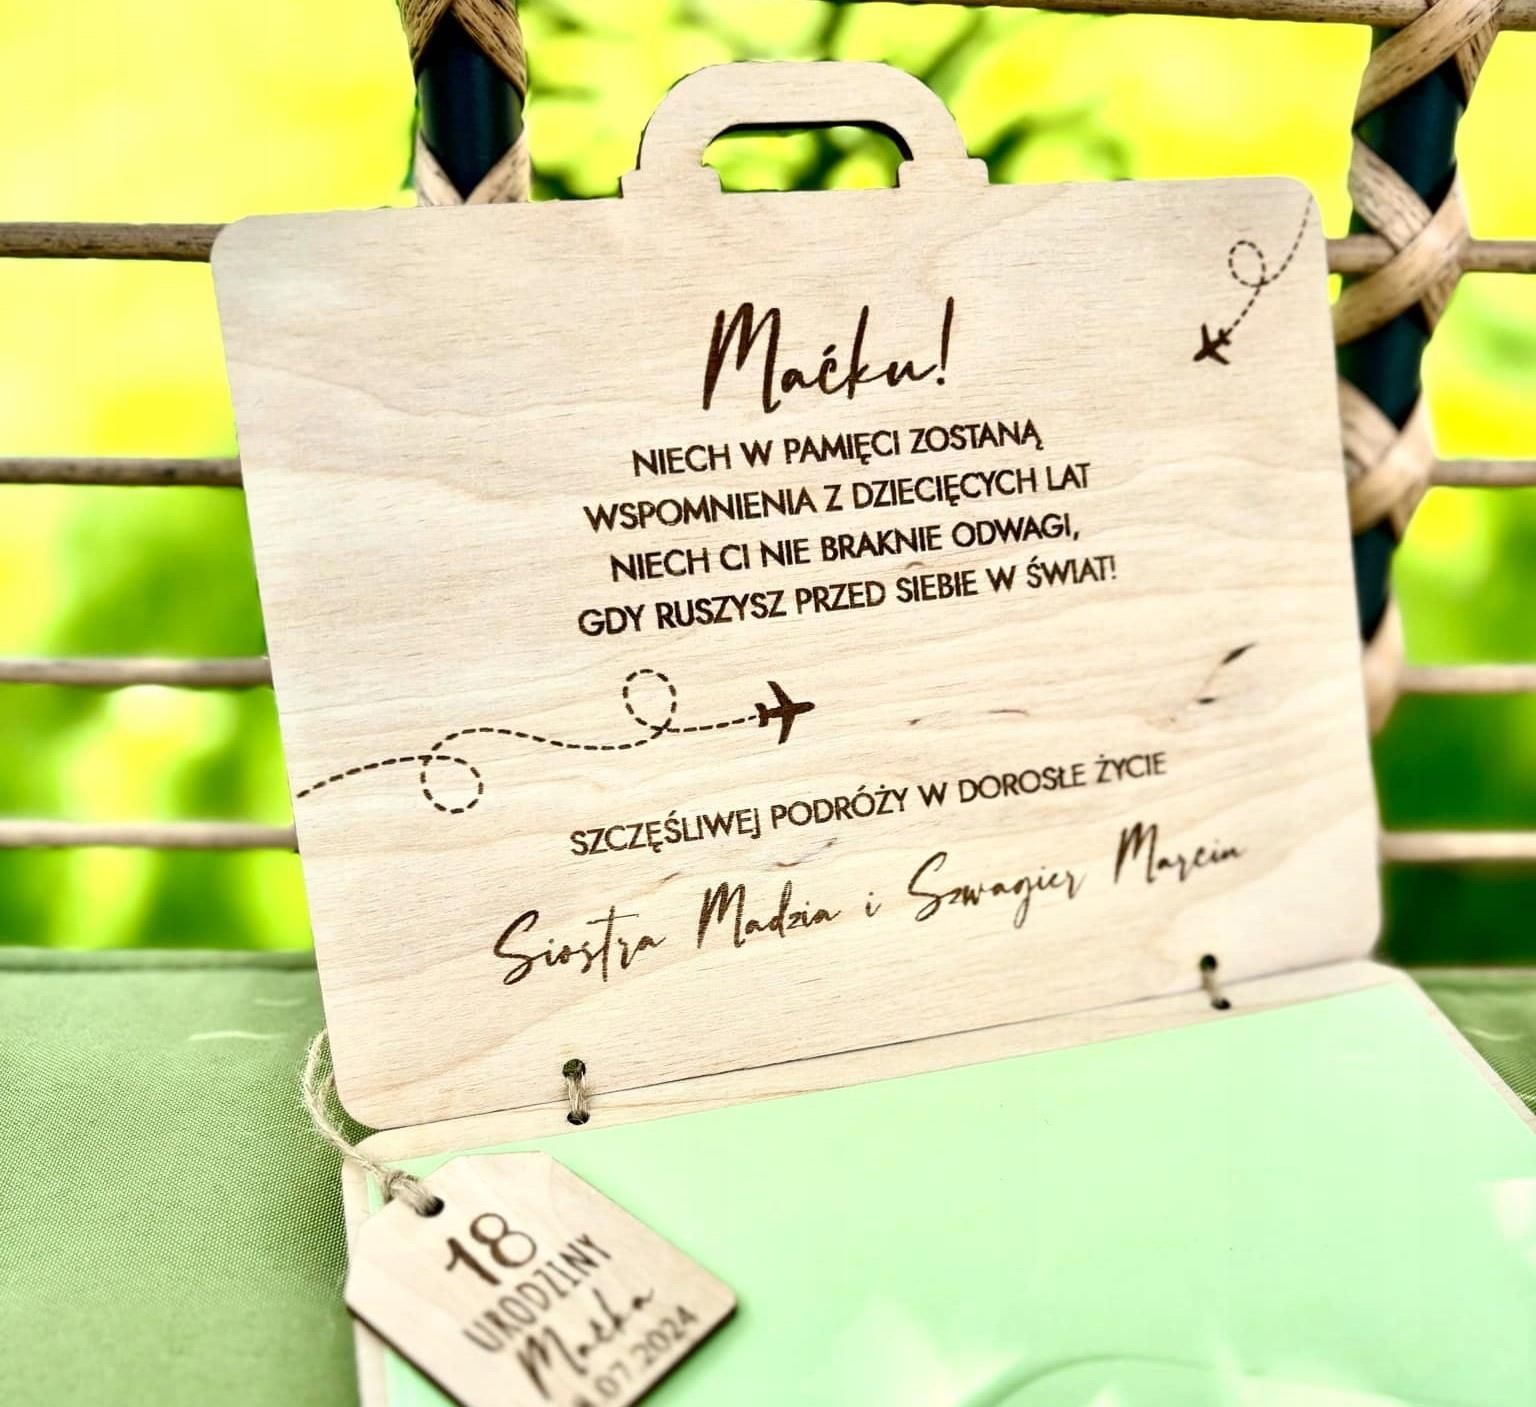 Maćku!
NIECH W PAMIĘCI ZOSTANĄ
WSPOMNIENIA Z DZIECIĘCYCH LAT
NIECH CI NIE BRAKNIE ODWAGI,
GDY RUSZYSZ PRZED SIEBIE W ŚWIAT!
SZCZĘŚLIWEJ PODRÓŻY W DOROSŁE ŻYCIE
Siostra Madzia i Szwagier Marcin
18
URODZINY
Maćka
.07.2024